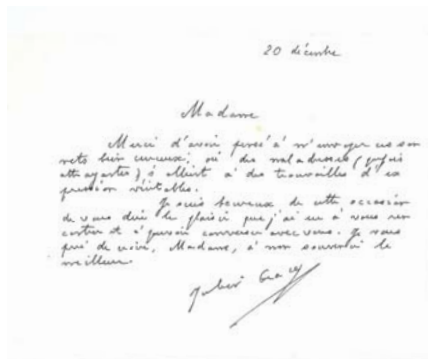 20 décembre
Madame
Merci d'avoir pensé à m'envoyer ces son
nets bien curieux, où des maladresses (parfois
attayantes) s'allient à des trouvailles d'ex
pression véritables.
Je suis heureux de cette occasion
de vous dire le plaisir que j'ai eu à vous ren
contrer et à pouvoir converser avec vous. Je vous
prie de croire, Madame, à mon souvenir le
meilleur.
Julien Gracq